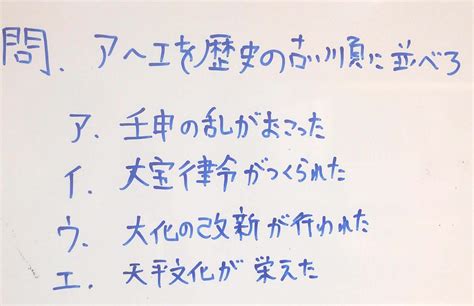 問. ア〜エを歴史の古い順に並べろ
ア. 壬申の乱がおこった
イ. 大宝律令がつくられた
ウ. 大化の改新が行われた
エ. 天平文化が栄えた